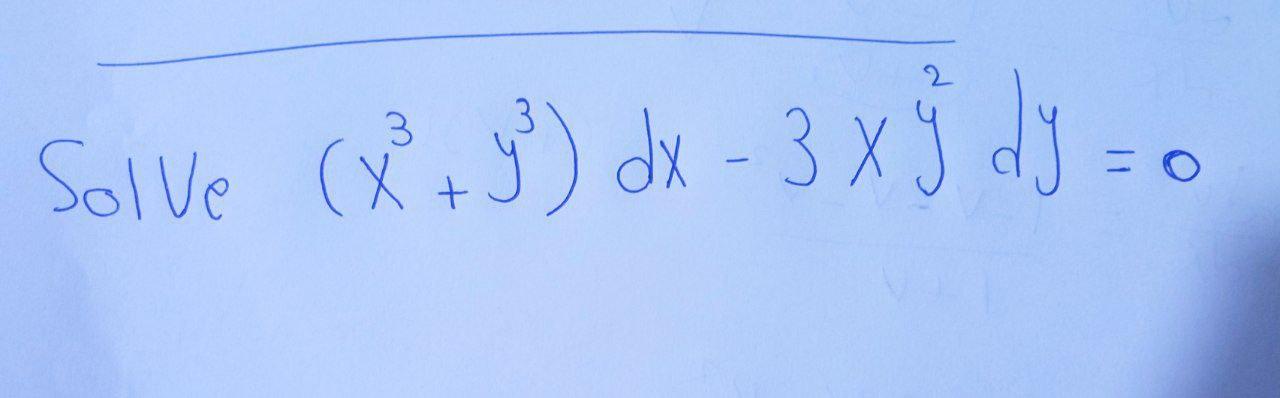 Solve (x³ + y³) dx - 3 x y² dy = 0